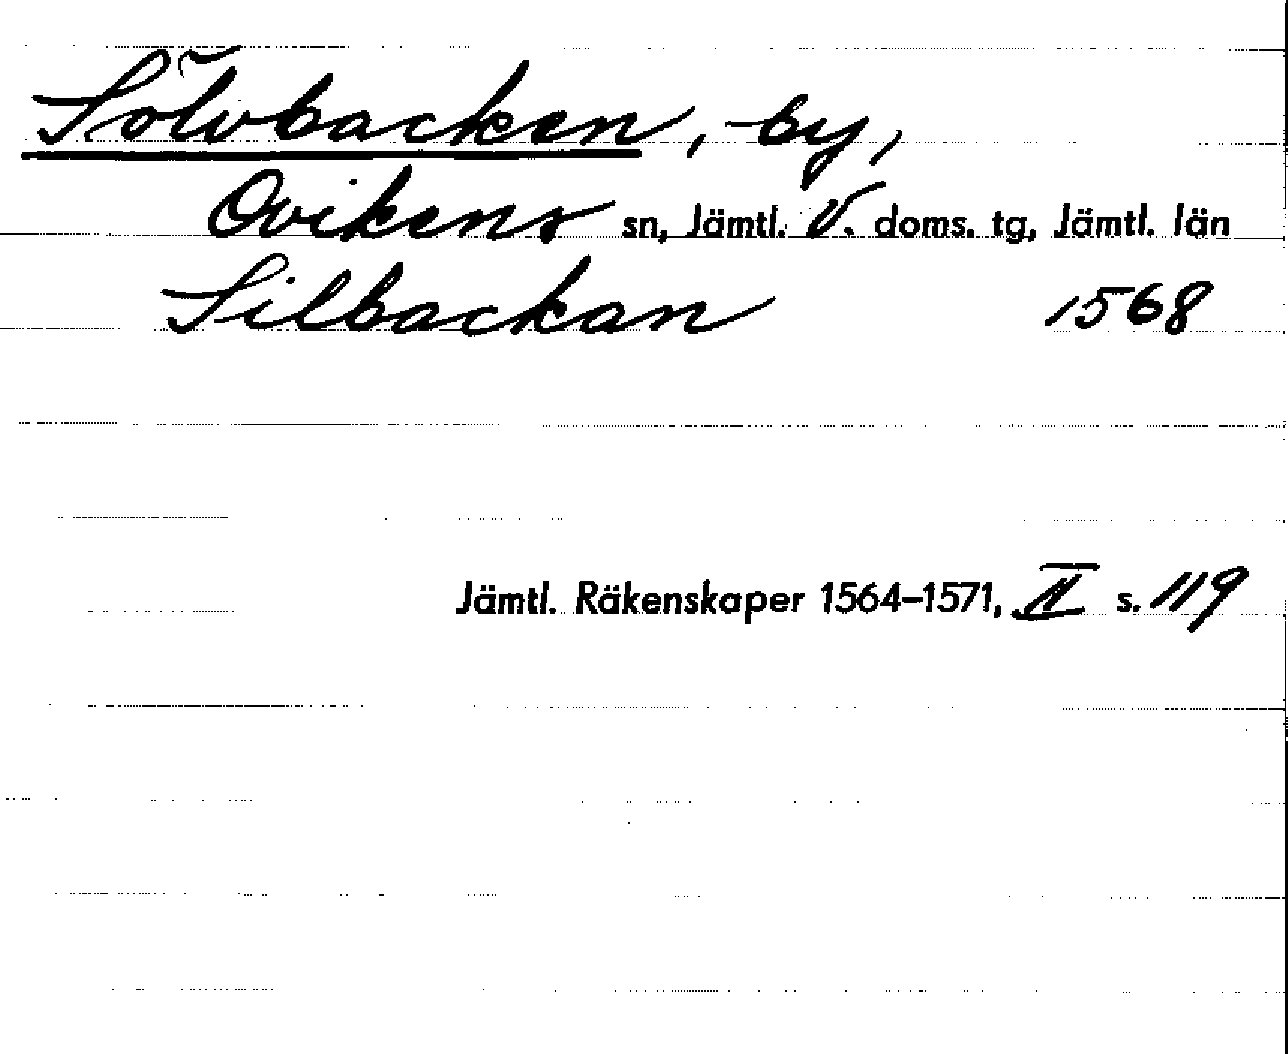 Sölvbacken, by,
Ovikens sn, Jämtl. V. doms. tg, Jämtl. län
Silbackan 1568
Jämtl. Räkenskaper 1564–1571, II s. 119